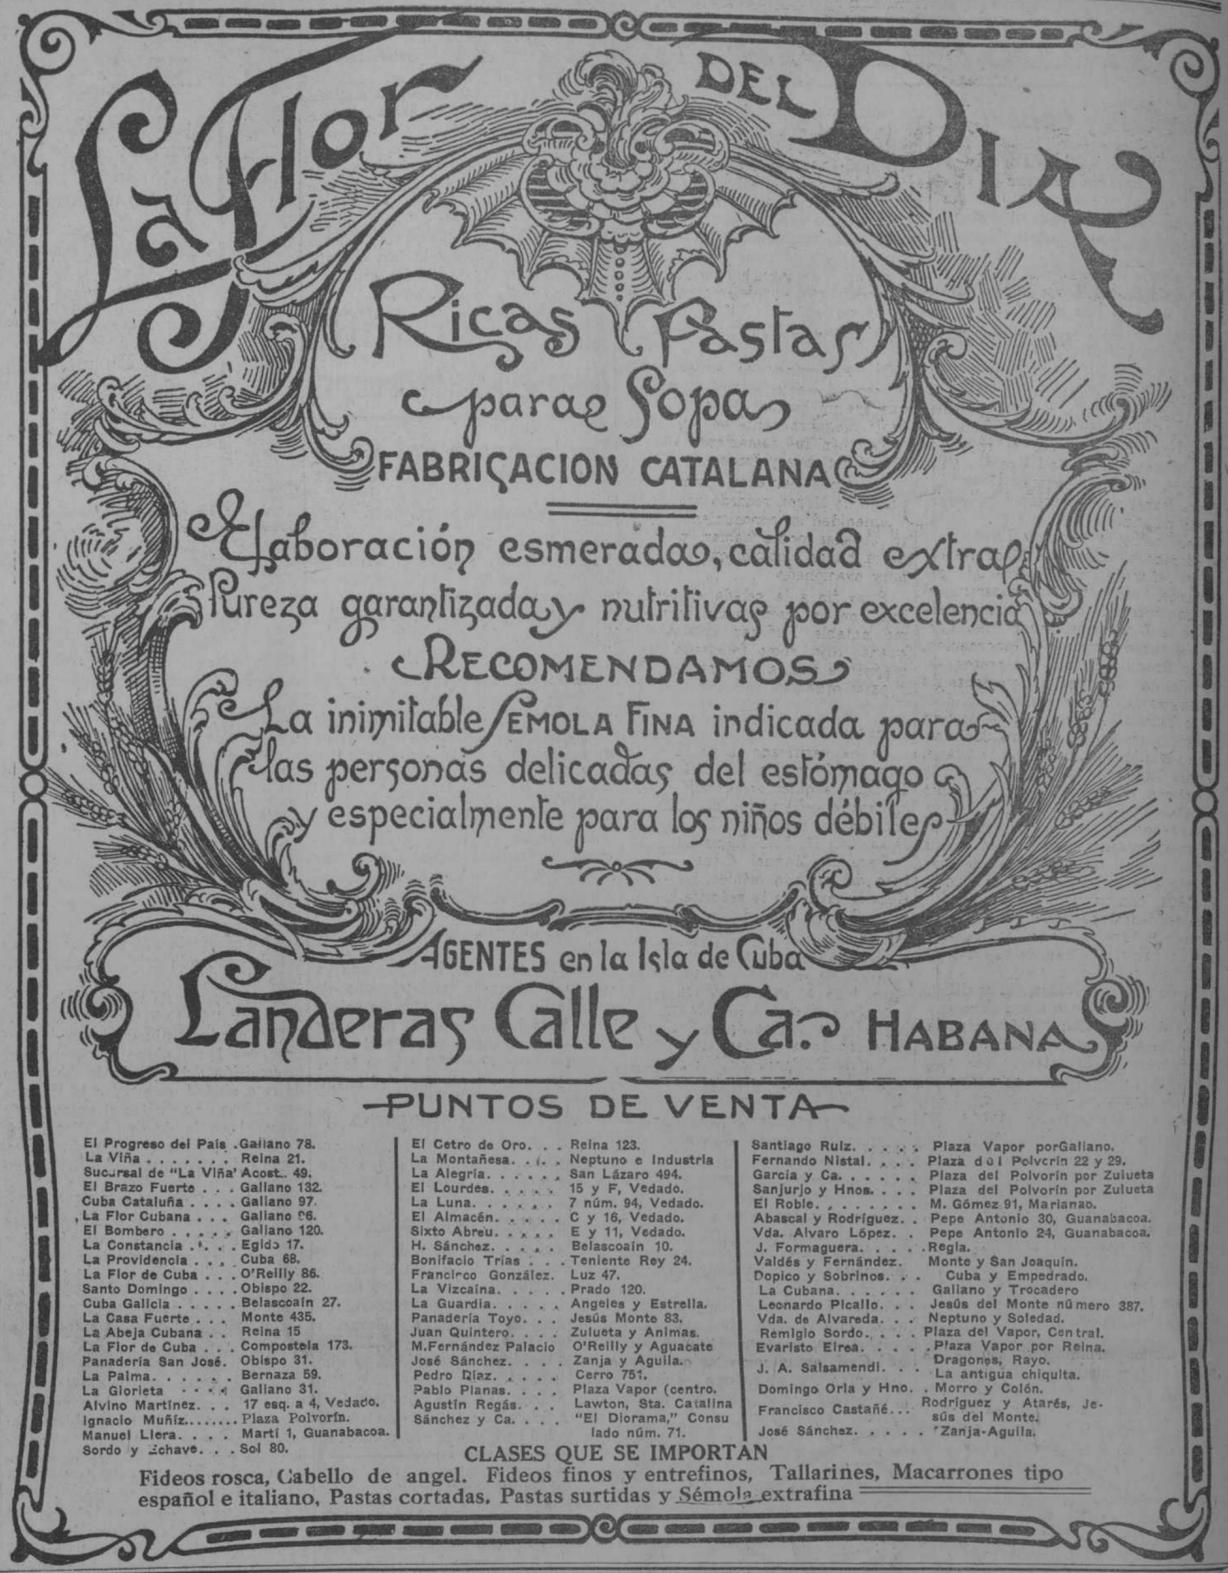 La Flor DEL DIA
Ricas Pastas
para Sopa
FABRICACION CATALANA
Elaboración esmerada, calidad extra
Pureza garantizada y nutritivas por excelencia
RECOMENDAMOS
La inimitable SEMOLA FINA indicada para
las personas delicadas del estómago
y especialmente para los niños débiles
AGENTES en la Isla de Cuba
Landeras Calle y Ca. HABANA
PUNTOS DE VENTA
El Progreso del País . Galiano 78.
La Viña . . . . . . . Reina 21.
Sucursal de "La Viña" Acost. 49.
El Brazo Fuerte . . . Galiano 132.
Cuba Cataluña . . . . Galiano 97.
La Flor Cubana . . . Galiano 96.
El Bombero . . . . . Galiano 120.
La Constancia . . . . Egido 17.
La Providencia . . . Cuba 68.
La Flor de Cuba . . . O'Reilly 86.
Santo Domingo . . . . Obispo 22.
Cuba Galicia . . . . . Belascoaín 27.
La Casa Fuerte . . . Monte 435.
La Abeja Cubana . . Reina 15
La Flor de Cuba . . . Compostela 173.
Panadería San José. Obispo 31.
La Palma . . . . . . Bernaza 59.
La Glorieta . . . . Galiano 31.
Alvino Martínez . . . 17 esq. a 4, Vedado.
Ignacio Muñíz....... Plaza Polvorín.
Manuel Llera . . . . Martí 1, Guanabacoa.
Sordo y Echave . . . Sol 80.
El Cetro de Oro . . . Reina 123.
La Montañesa . . . . Neptuno e Industria
La Alegría . . . . . . San Lázaro 494.
El Lourdes . . . . . 15 y F, Vedado.
La Luna . . . . . . 7 núm. 94, Vedado.
El Almacén . . . . . C y 16, Vedado.
Sixto Abreu . . . . . E y 11, Vedado.
H. Sánchez . . . . . Belascoaín 10.
Bonifacio Trías . . . Teniente Rey 24.
Francisco González. Luz 47.
La Vizcaína . . . . . Prado 120.
La Guardia . . . . . Angeles y Estrella.
Panadería Toyo . . . Jesús Monte 83.
Juan Quintero . . . . Zulueta y Animas.
M. Fernández Palacio O'Reilly y Aguacate
José Sánchez . . . . Zanja y Aguila.
Pedro Díaz . . . . . Cerro 751.
Pablo Planas . . . . Plaza Vapor (centro.
Agustín Regás . . . Lawton, Sta. Catalina
Sánchez y Ca. . . . "El Diorama," Consu
lado núm. 71.
Santiago Ruiz . . . . . Plaza Vapor por Galiano.
Fernando Nistal . . . . Plaza del Polvorín 22 y 29.
García y Ca. . . . . . Plaza del Polvorín por Zulueta
Sanjurjo y Hnos. . . . Plaza del Polvorín por Zulueta
El Roble . . . . . . . M. Gómez 91, Marianao.
Abascal y Rodríguez . . Pepe Antonio 30, Guanabacoa.
Vda. Alvaro López . . Pepe Antonio 24, Guanabacoa.
J. Formaguera . . . . . Regla.
Valdés y Fernández. Monte y San Joaquín.
Dopico y Sobrinos . . . Cuba y Empedrado.
La Cubana . . . . . . Galiano y Trocadero
Leonardo Picallo . . . Jesús del Monte número 387.
Vda. de Alvareda . . . Neptuno y Soledad.
Remigio Sordo . . . . Plaza del Vapor, Central.
Evaristo Eirea . . . . Plaza Vapor por Reina.
J. A. Salsamendi . . . Dragones, Rayo.
La antigua chiquita.
Domingo Oria y Hno. . Morro y Colón.
Francisco Castañé... Rodríguez y Atarés, Je-
sús del Monte.
José Sánchez . . . . . Zanja-Aguila.
CLASES QUE SE IMPORTAN
Fideos rosca, Cabello de angel. Fideos finos y entrefinos, Tallarines, Macarrones tipo
español e italiano, Pastas cortadas, Pastas surtidas y Sémola extrafina